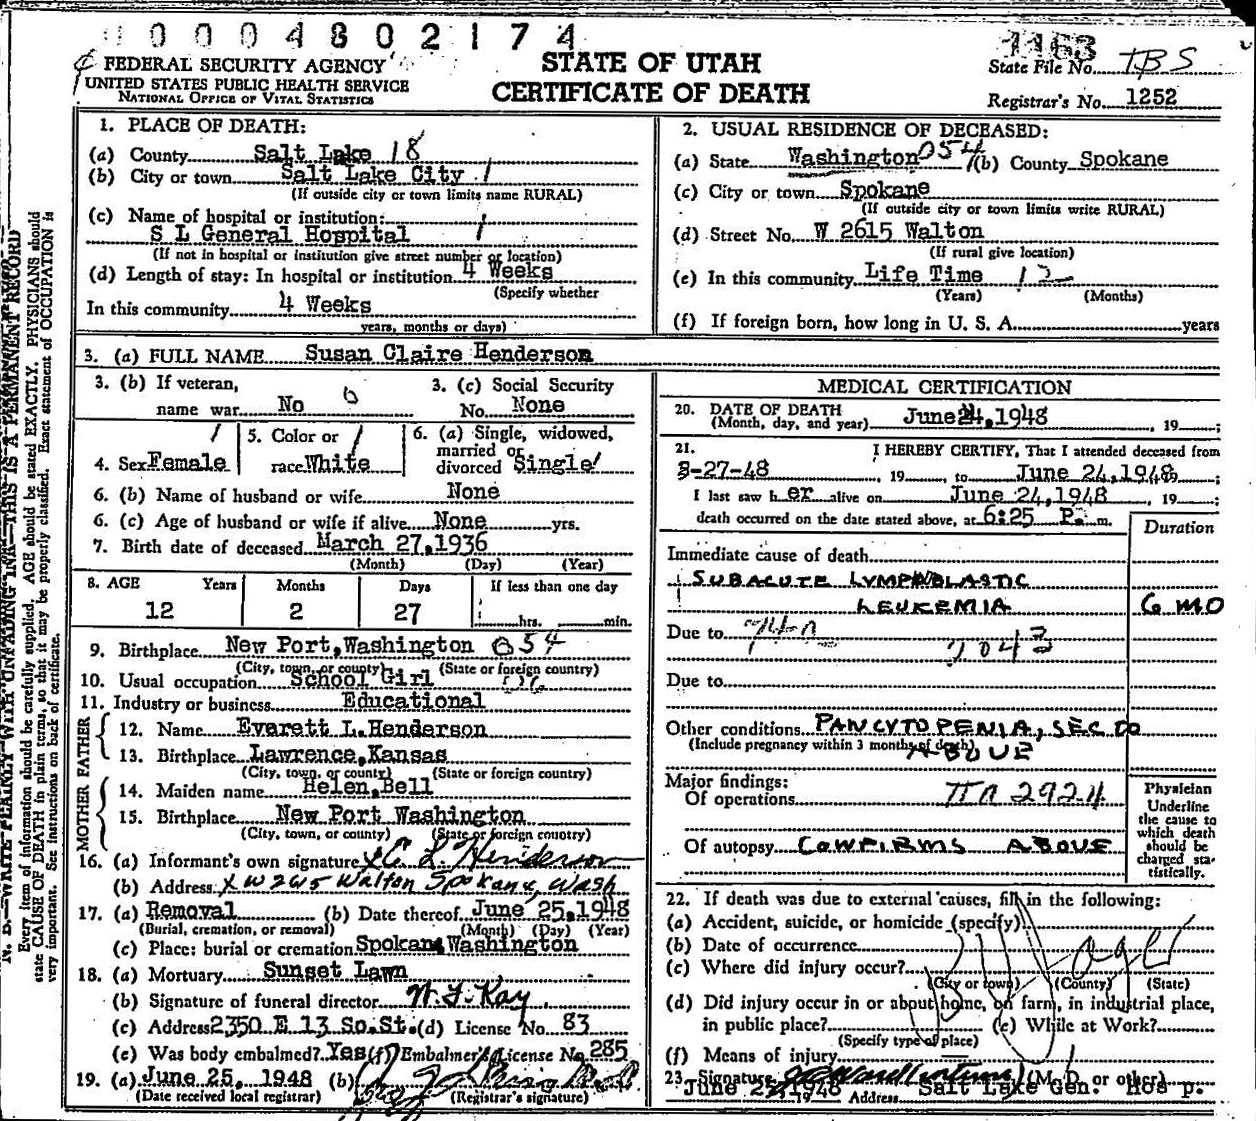 0 0 0 4 8 0 2 1 7 4
FEDERAL SECURITY AGENCY
UNITED STATES PUBLIC HEALTH SERVICE
NATIONAL OFFICE OF VITAL STATISTICS
STATE OF UTAH
CERTIFICATE OF DEATH
1163
State File No. TBS
Registrar's No. 1252
1. PLACE OF DEATH:
(a) County Salt Lake 18
(b) City or town Salt Lake City 1
(If outside city or town limits name RURAL)
(c) Name of hospital or institution:
S L General Hospital 1
(If not in hospital or institution give street number or location)
(d) Length of stay: In hospital or institution 4 Weeks
(Specify whether
In this community 4 Weeks
years, months or days)
2. USUAL RESIDENCE OF DECEASED:
(a) State Washington 054 (b) County Spokane
(c) City or town Spokane
(If outside city or town limits write RURAL)
(d) Street No. W 2615 Walton
(If rural give location)
(e) In this community Life Time 12
(Years) (Months)
(f) If foreign born, how long in U. S. A. years
3. (a) FULL NAME Susan Claire Henderson
3. (b) If veteran, name war No
3. (c) Social Security No. None
4. Sex Female
5. Color or race White
6. (a) Single, widowed, married or divorced Single
6. (b) Name of husband or wife None
6. (c) Age of husband or wife if alive None yrs.
7. Birth date of deceased March 27, 1936
(Month) (Day) (Year)
8. AGE Years Months Days If less than one day
12 2 27 hrs. min.
9. Birthplace New Port, Washington 054
(City, town, or county) (State or foreign country)
10. Usual occupation School Girl
11. Industry or business Educational
FATHER
12. Name Everett L. Henderson
13. Birthplace Lawrence, Kansas
(City, town, or county) (State or foreign country)
MOTHER
14. Maiden name Helen Bell
15. Birthplace New Port Washington
(City, town, or county) (State or foreign country)
16. (a) Informant's own signature x E. L. Henderson
(b) Address x W 2615 Walton Spokane, Wash
17. (a) Removal (b) Date thereof June 25, 1948
(Burial, cremation, or removal) (Month) (Day) (Year)
(c) Place: burial or cremation Spokane Washington
18. (a) Mortuary Sunset Lawn
(b) Signature of funeral director W. F. Kay
(c) Address 2350 E 13 So. St. (d) License No. 83
(e) Was body embalmed? Yes (f) Embalmer's License No 285
19. (a) June 25, 1948 (b)
(Date received local registrar) (Registrar's signature)
MEDICAL CERTIFICATION
20. DATE OF DEATH June 24, 1948 , 19 ;
(Month, day, and year)
21. I HEREBY CERTIFY, That I attended deceased from
3-27-48 , 19 , to June 24, 1948 , 19 ;
I last saw h er alive on June 24, 1948 , 19 ;
death occurred on the date stated above, at 6:25 P. m.
Duration
Immediate cause of death
SUBACUTE LYMPHOBLASTIC
LEUKEMIA 6 MO
Due to 74a
2043
Due to
Other conditions PANCYTOPENIA, SEC TO
(Include pregnancy within 3 months of death) ABOVE
Major findings:
Of operations
Of autopsy CONFIRMS ABOVE
Physician
Underline
the cause to
which death
should be
charged sta-
tistically.
22. If death was due to external causes, fill in the following:
(a) Accident, suicide, or homicide (specify)
(b) Date of occurrence
(c) Where did injury occur?
(City or town) (County) (State)
(d) Did injury occur in or about home, on farm, in industrial place,
in public place? (e) While at Work?
(Specify type of place)
(f) Means of injury
23. Signature (M. D. or other)
June 1948 Address Salt Lake Gen. Hosp.
N. B.—WRITE PLAINLY WITH UNFADING INK—THIS IS A PERMANENT RECORD
Every item of information should be carefully supplied. AGE should be stated EXACTLY. PHYSICIANS should
state CAUSE OF DEATH in plain terms, so that it may be properly classified. Exact statement of OCCUPATION is
very important. See instructions on back of certificate.